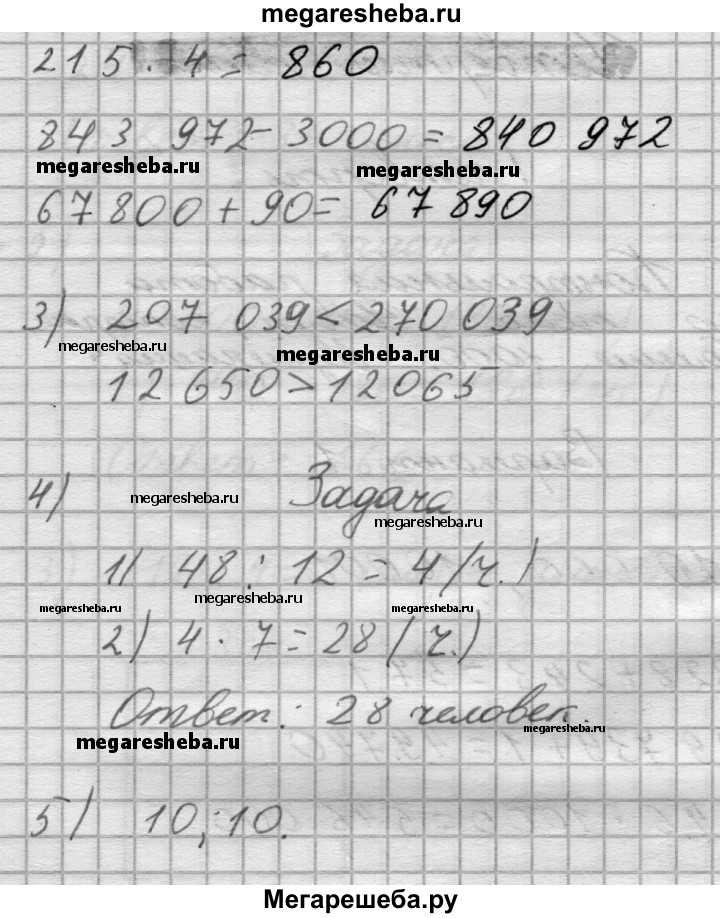 megaresheba.ru
215 · 4 = 860
843 972 - 3000 = 840 972
megaresheba.ru megaresheba.ru
67 800 + 90 = 67 890
3) 207 039 < 270 039
megaresheba.ru megaresheba.ru
12 650 > 12 065
4) megaresheba.ru Задача
megaresheba.ru
1) 48 : 12 = 4 (ч.)
megaresheba.ru megaresheba.ru megaresheba.ru
2) 4 · 7 = 28 (ч.)
Ответ: 28 человек.
megaresheba.ru megaresheba.ru
5) 10; 10.
Мегарешеба.ру